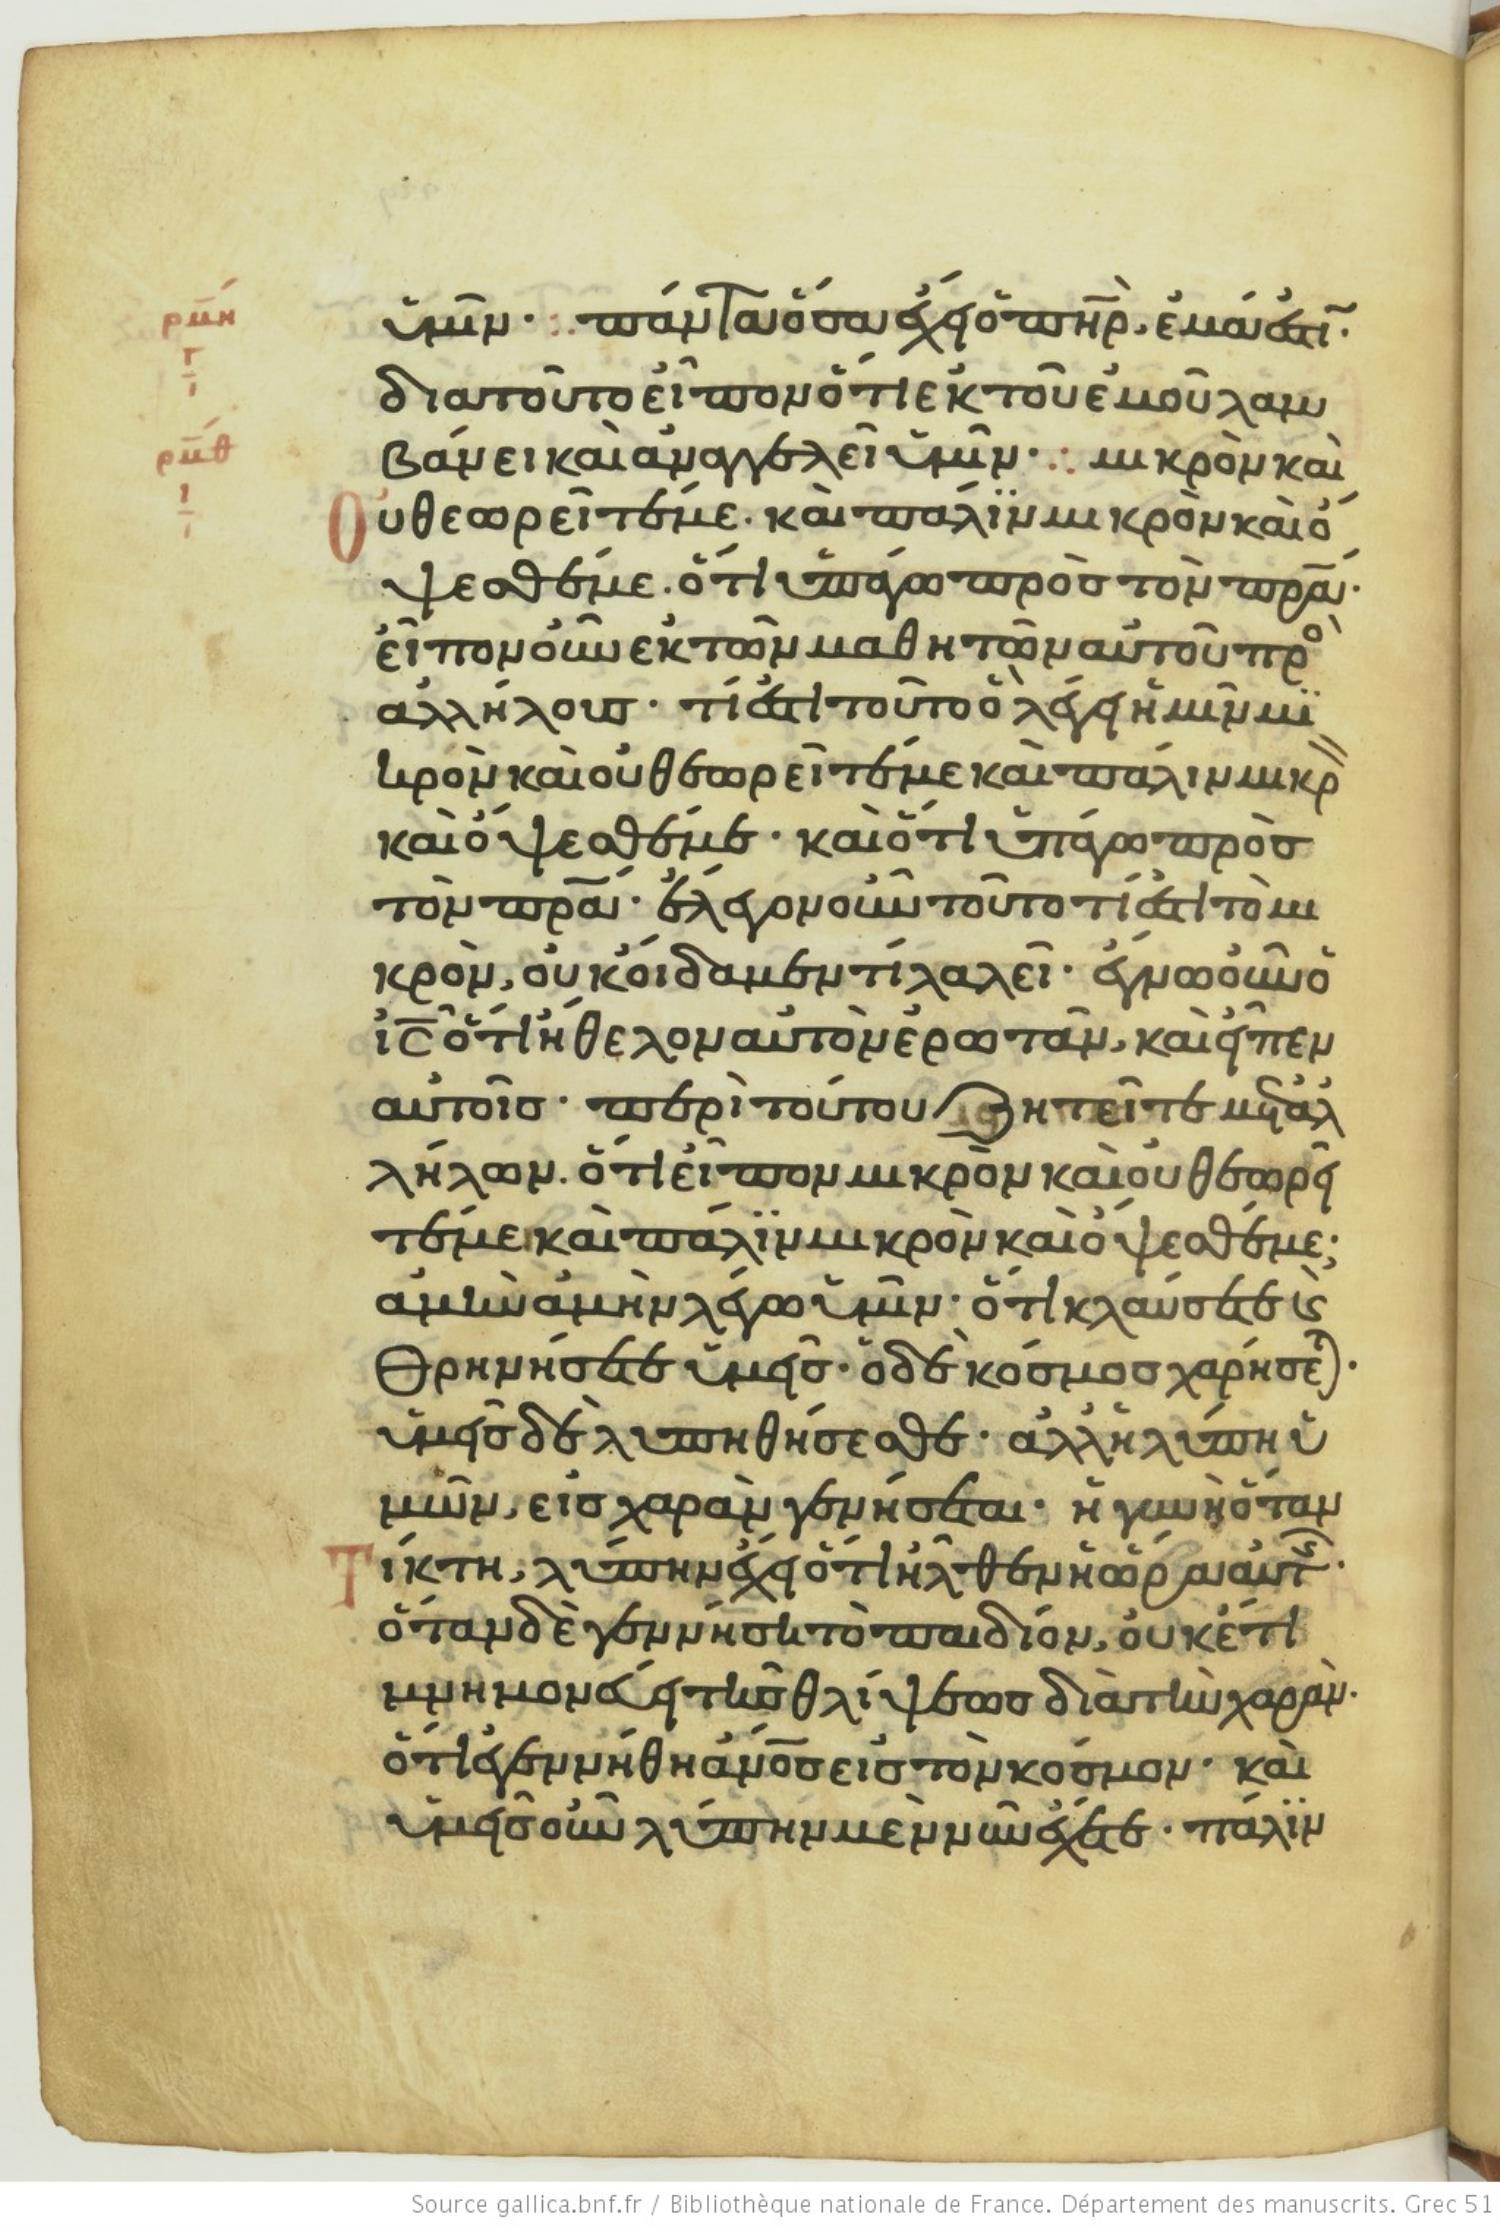 ρμη
γ
ρμθ
ι
ὑμῖν · πάντα ὅσα ἔχει ὁ πηρ, ἐμά ἐστι ·
διατοῦτο εἶπον ὅτι ἐκ τοῦ ἐμοῦ λαμ
βάνει καὶ ἀναγγελεῖ ὑμῖν · μικρὸν καὶ
Οὐ θεωρεῖτέ με · καὶ πάλϊν μικρὸν καὶ ὄ
ψεσθέ με · ὅτι ὑπάγω πρὸσ τὸν πρα ·
εἶπον οὖν ἐκ τῶν μαθητῶν αὐτοῦ πρὸ
ἀλλήλουσ · τί ἐστι τοῦτο ὃ λέγει ἡμῖν μϊ
κρὸν καὶ οὐ θεωρεῖτέ με καὶ πάλιν μικρ
καὶ ὄψεσθέ με · καὶ ὅτι ὑπάγω πρὸσ
τὸν πρα · ἔλεγον οὖν τοῦτο τί ἐστι τὸ μι
κρὸν, οὐκ οἴδαμεν τί λαλεῖ · ἔγνω οὖν ὁ
ἰσ ὅτι ἤθελον αὐτὸν ἐρωτᾶν, καὶ εἶπεν
αὐτοῖσ · περὶ τούτου ζητεῖτε μετ ἀλ
λήλων · ὅτι εἶπον μικρὸν καὶ οὐ θεωρεῖ
τέ με καὶ πάλϊν μικρὸν καὶ ὄψεσθέ με;
ἀμὴν ἀμὴν λέγω ὑμῖν · ὅτι κλαύσετε ϗ
θρηνήσετε ὑμεῖσ · ὁ δὲ κόσμοσ χαρήσε ·
ὑμεῖσ δὲ λυπηθήσεσθε · ἀλλ ἡ λύπη ὑ
μῶν, εἰσ χαρὰν γενήσεται · ἡ γυνὴ ὅταν
Τίκτη, λύπην ἔχει ὅτι ἦλθεν ἡ ὥρα αὐτ ·
ὅταν δὲ γεννήση τὸ παιδίον, οὐκέτι
μνημονεύει τῆσ θλίψεωσ διὰ τὴν χαρὰν ·
ὅτι ἐγεννήθη ἀνοσ εἰσ τὸν κόσμον · καὶ
ὑμεῖσ οὖν λύπην μὲν νῦν ἔχετε · πάλϊν
Source gallica.bnf.fr / Bibliothèque nationale de France. Département des manuscrits. Grec 51